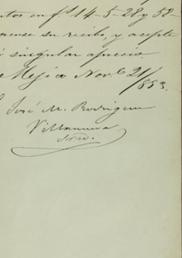 en f. 14 - 5 - 28 y 58 -
su recibo, y acepte
singular aprecio.
Mejico Novbe 21/853.
José M. Rodriguez
Villanueva